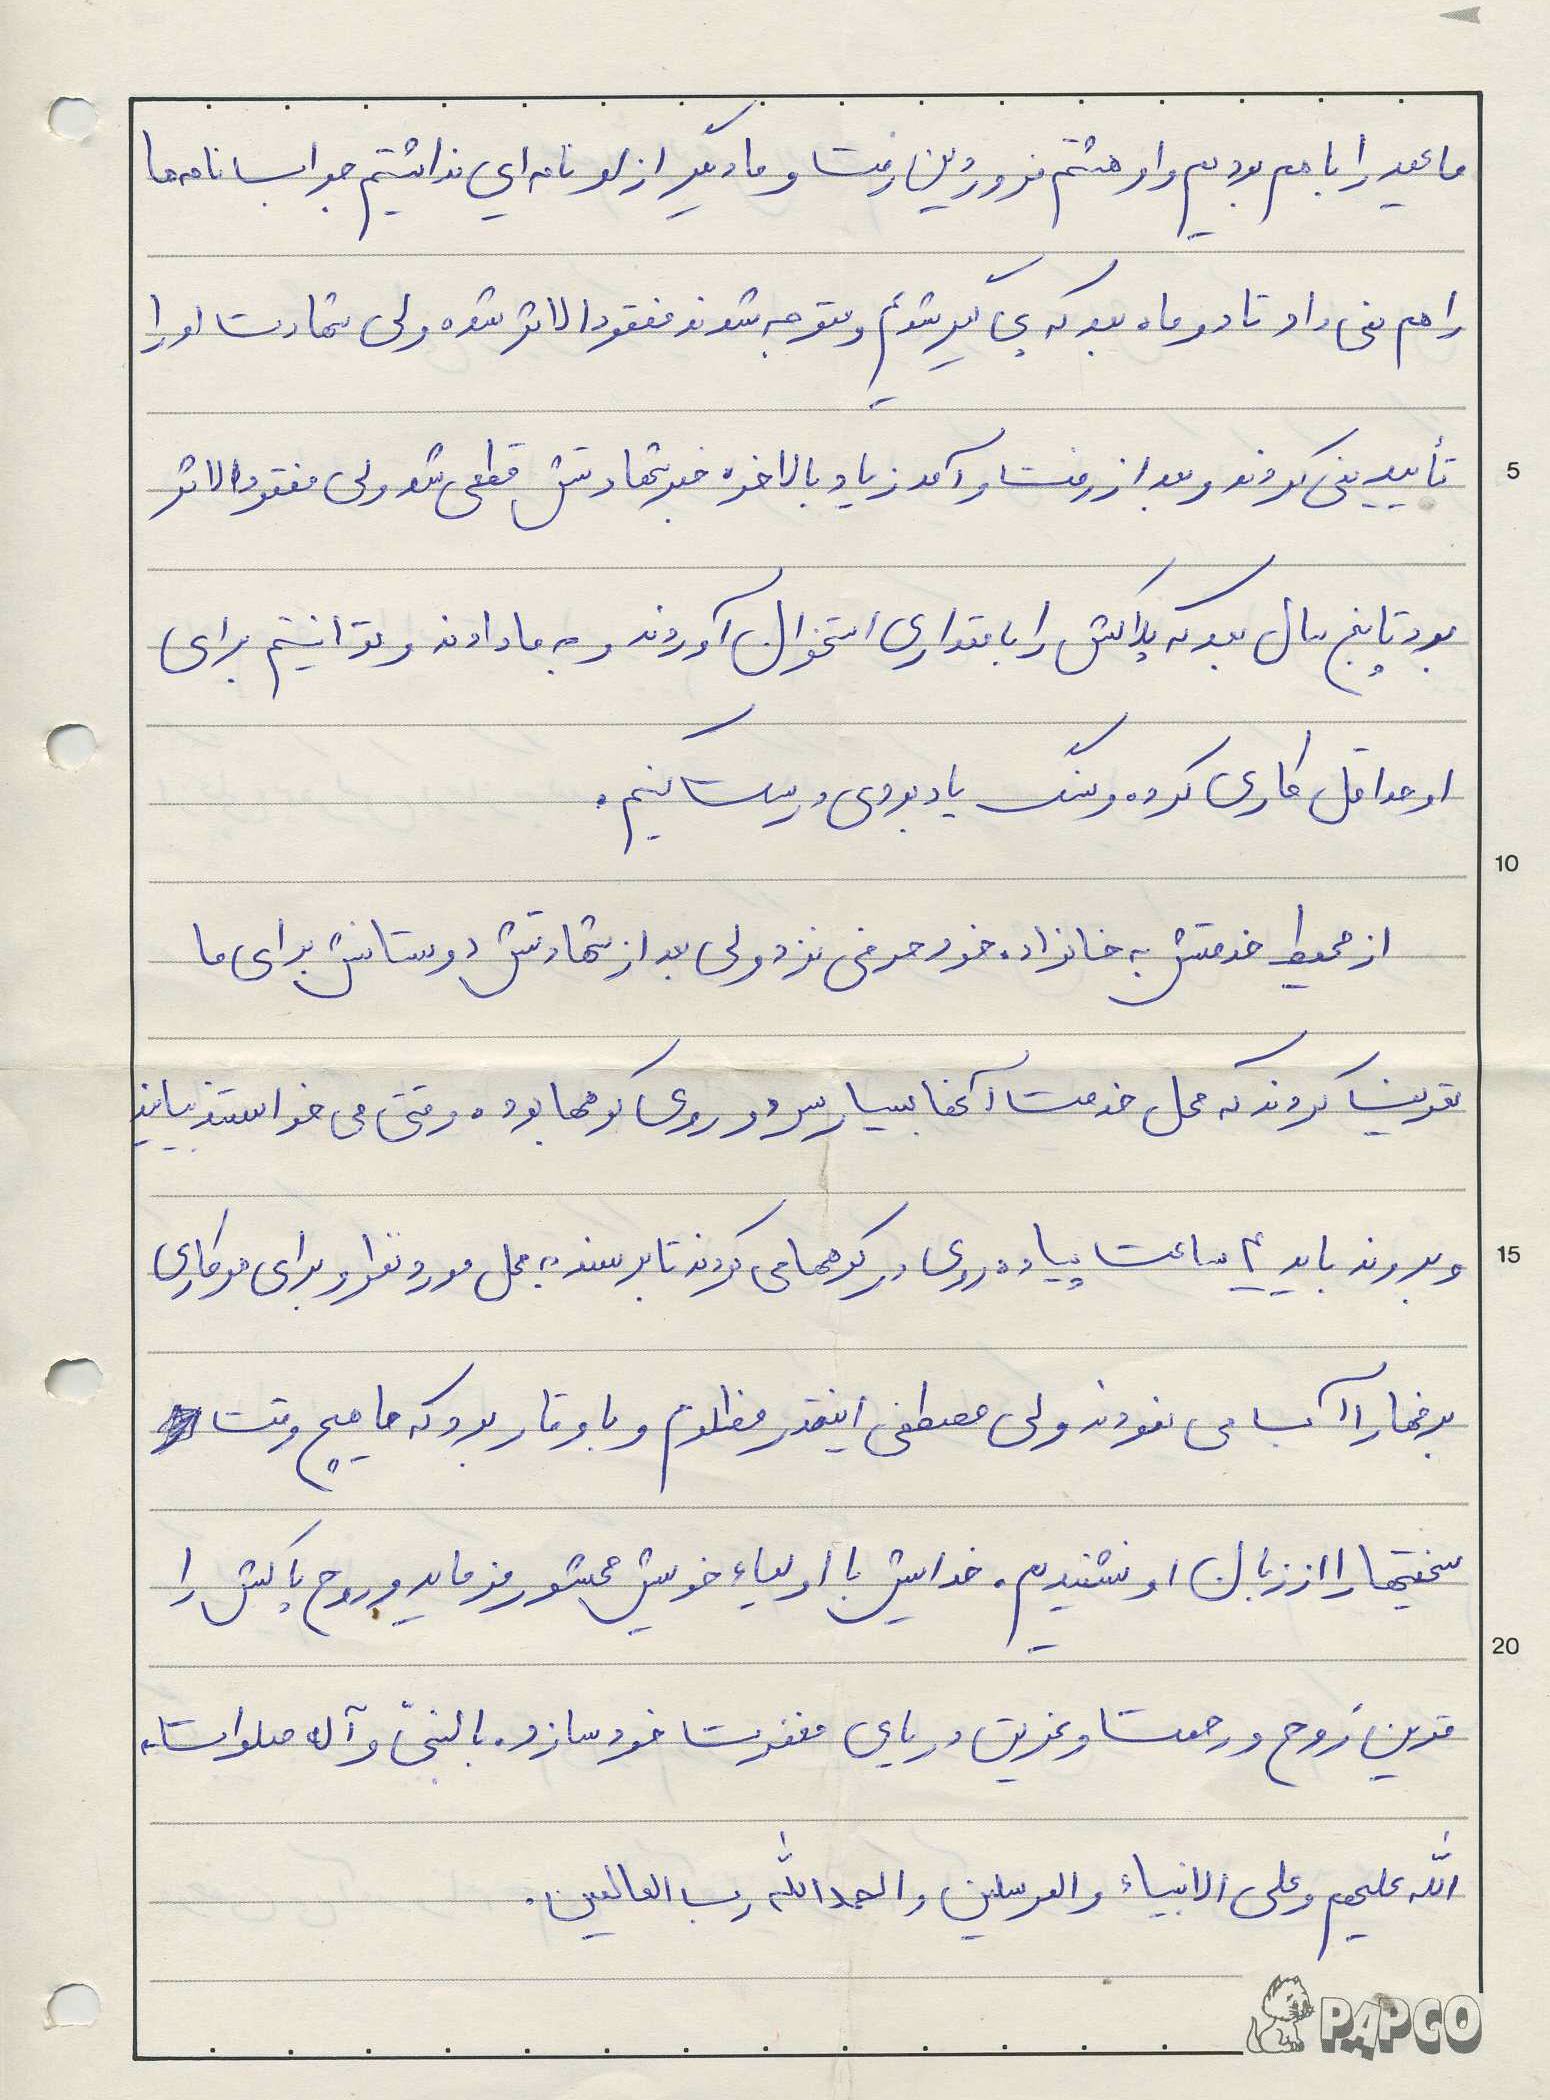 ما عید را با هم بودیم و او هشتم فروردین رفت و ما دیگر از او نامه‌ای نداشتیم جواب نامه‌ها
را هم نمی داد تا دو ماه بعد که پی گیر شدیم و متوجه شدند مفقودالاثر شده ولی شهادت او را
5
تأیید نمی کردند و بعد از رفت و آمد زیاد بالاخره خبر شهادتش قطعی شد ولی مفقودالاثر
بود تا پنج سال بعد که پلاکش را با مقداری استخوان آوردند و به ما دادند و توانستیم برای
او حداقل کاری کرده و سنگ یادبودی درست کنیم.
10
از محیط خدمتش به خانواده خود حرفی نزد ولی بعد از شهادتش دوستانش برای ما
تعریف کردند که محل خدمت آنها بسیار سرد و روی کوهها بوده وقتی می خواستند بیایند
15
و بروند باید ۴ ساعت پیاده روی در کوهها می کردند تا برسند به محل مورد نظر و برای هر کاری
برفها را آب می نمودند ولی مصطفی اینقدر مظلوم و با وقار بود که ما هیچ وقت
سختیها را از زبان او نشنیدیم. خدایش با اولیاء خویش محشور فرماید و روح پاکش را
20
قرین رَوح و رحمت و غریق دریای مغفرت خود سازد. بالنبیّ و آله صلوات
الله علیهم و علی الانبیاء و المرسلین و الحمدالله رب العالمین.
PAPCO